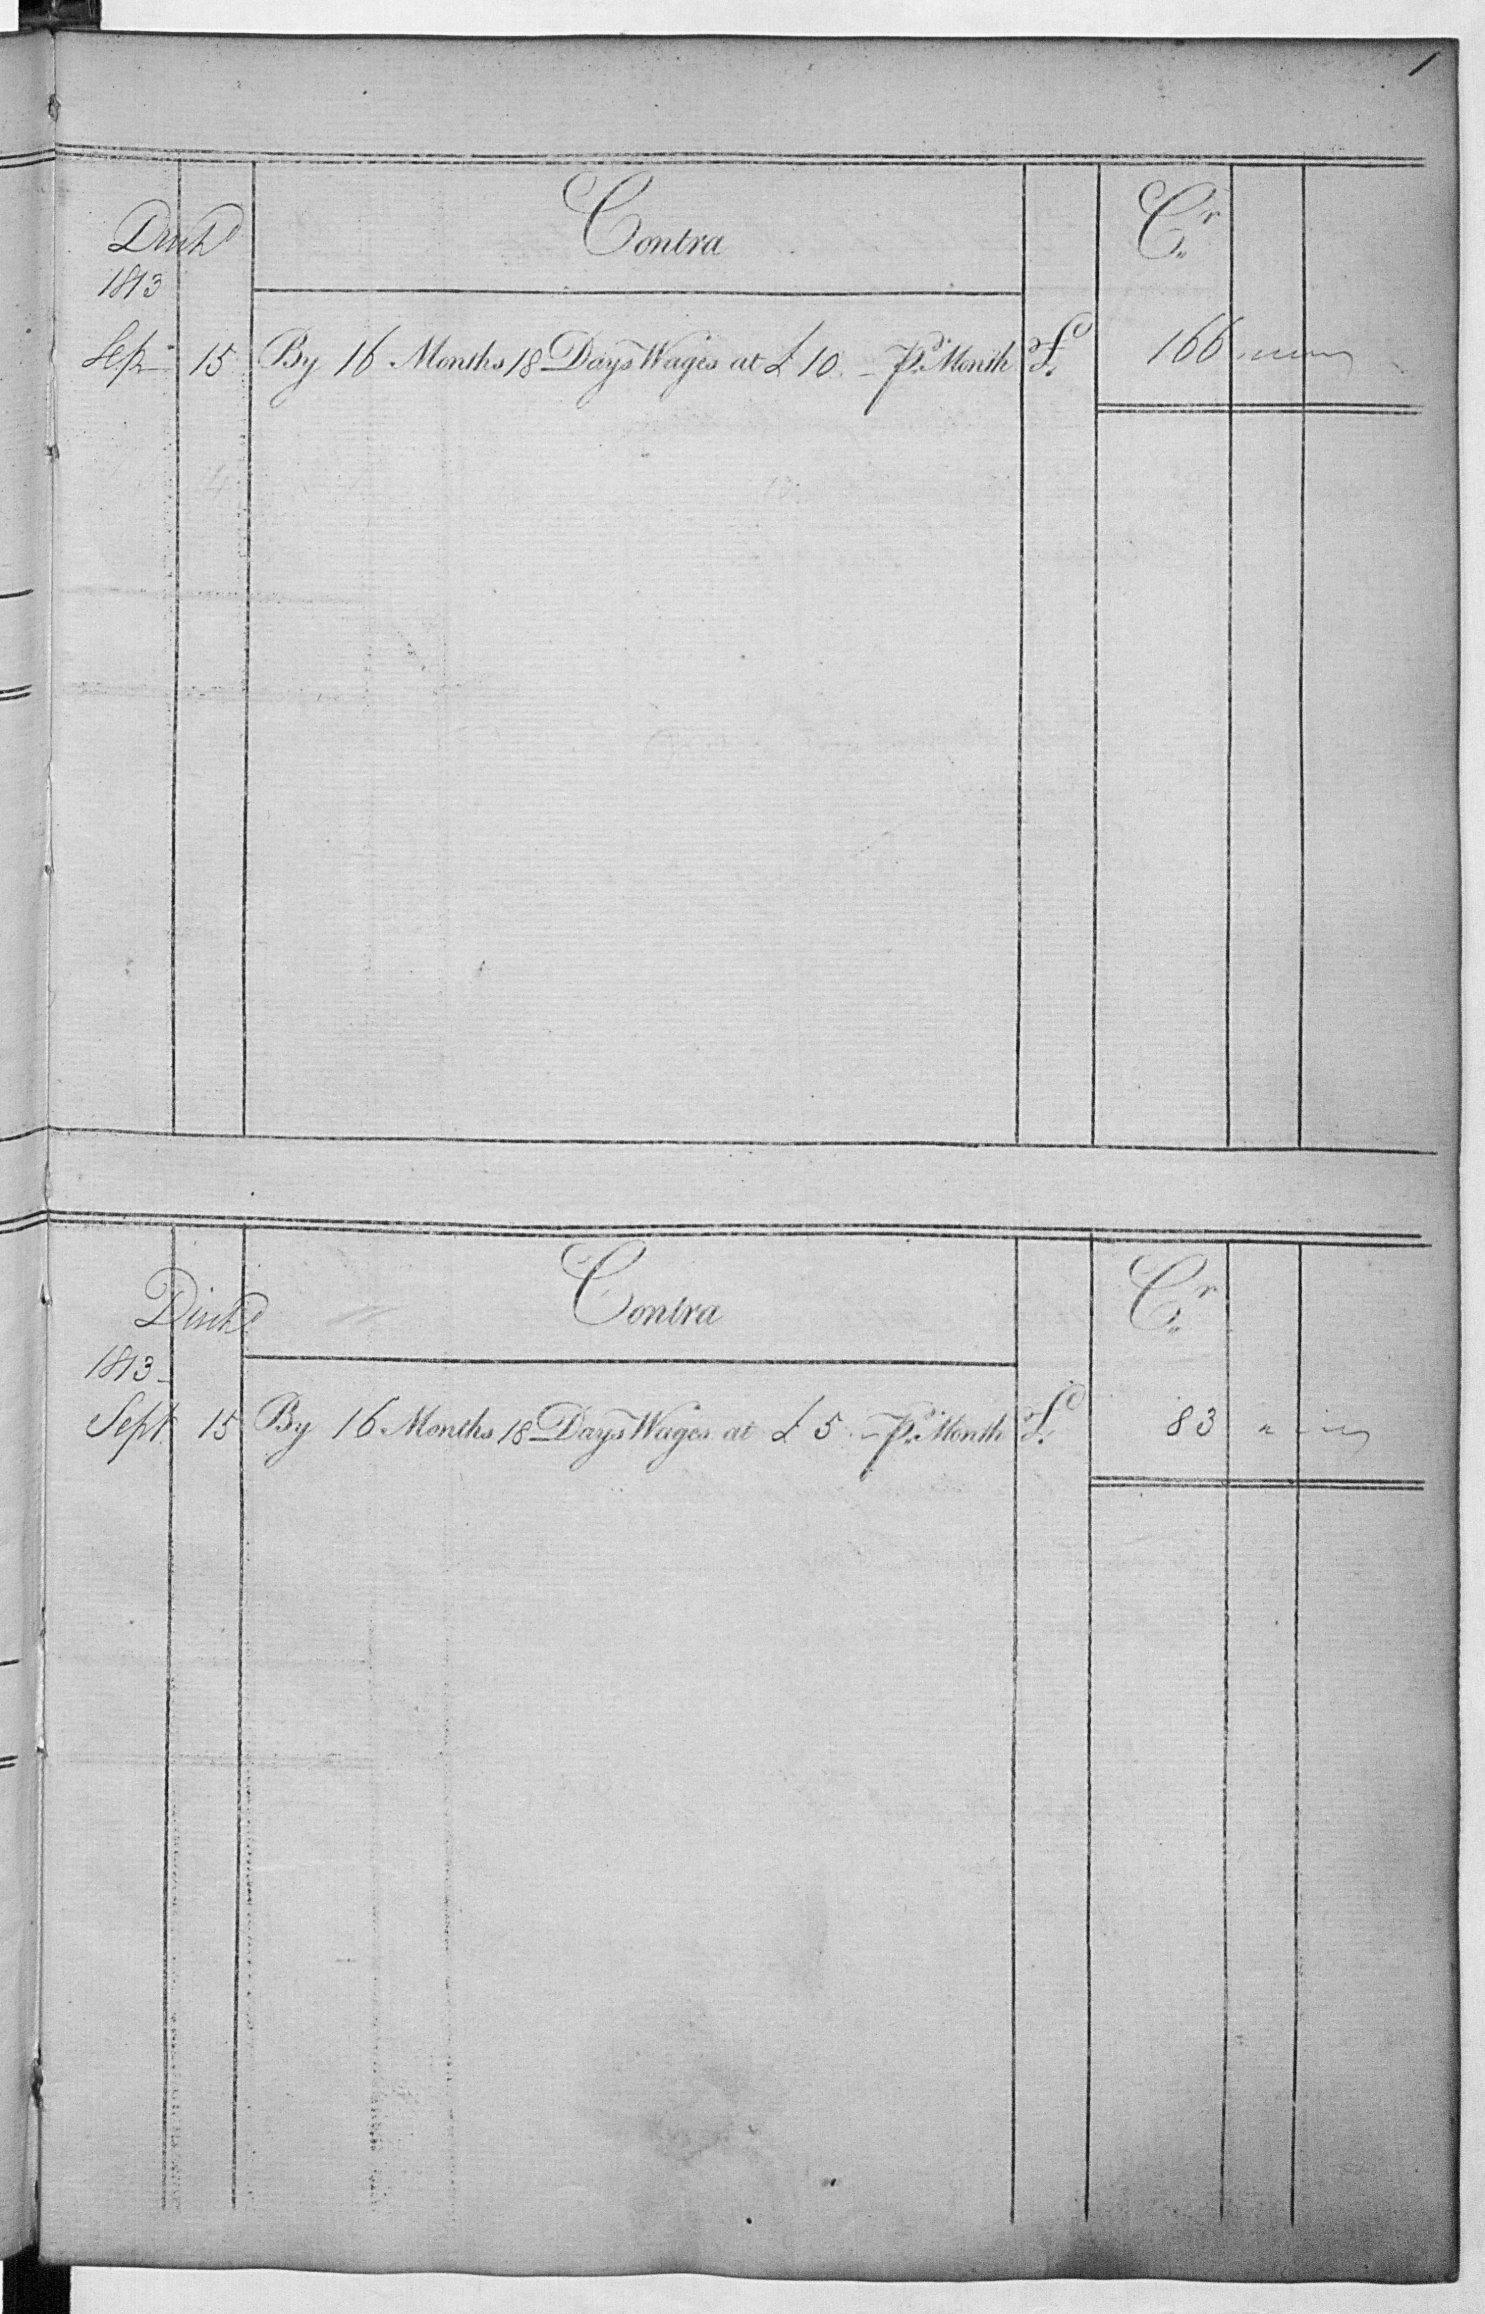 1
Contra Cr
Disch^d
1813
Sep^r 15 By 16 Months 18 Days Wages at £ 10 - P^r Month £ 166 " "
Contra Cr
Disch^d
1813
Sept 15 By 16 Months 18 Days Wages at £ 5 - P^r Month £ 83 " "